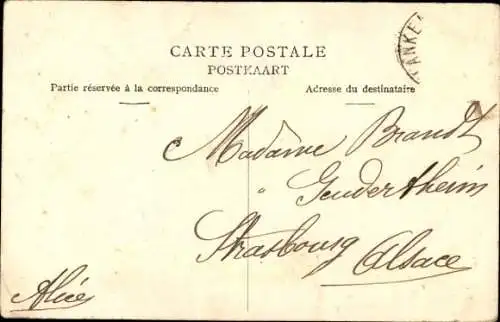 CARTE POSTALE
POSTKAART
Partie réservée à la correspondance
Adresse du destinataire
ANKE
Madame Brandt
Geudertheim
Strasbourg Alsace
Alice